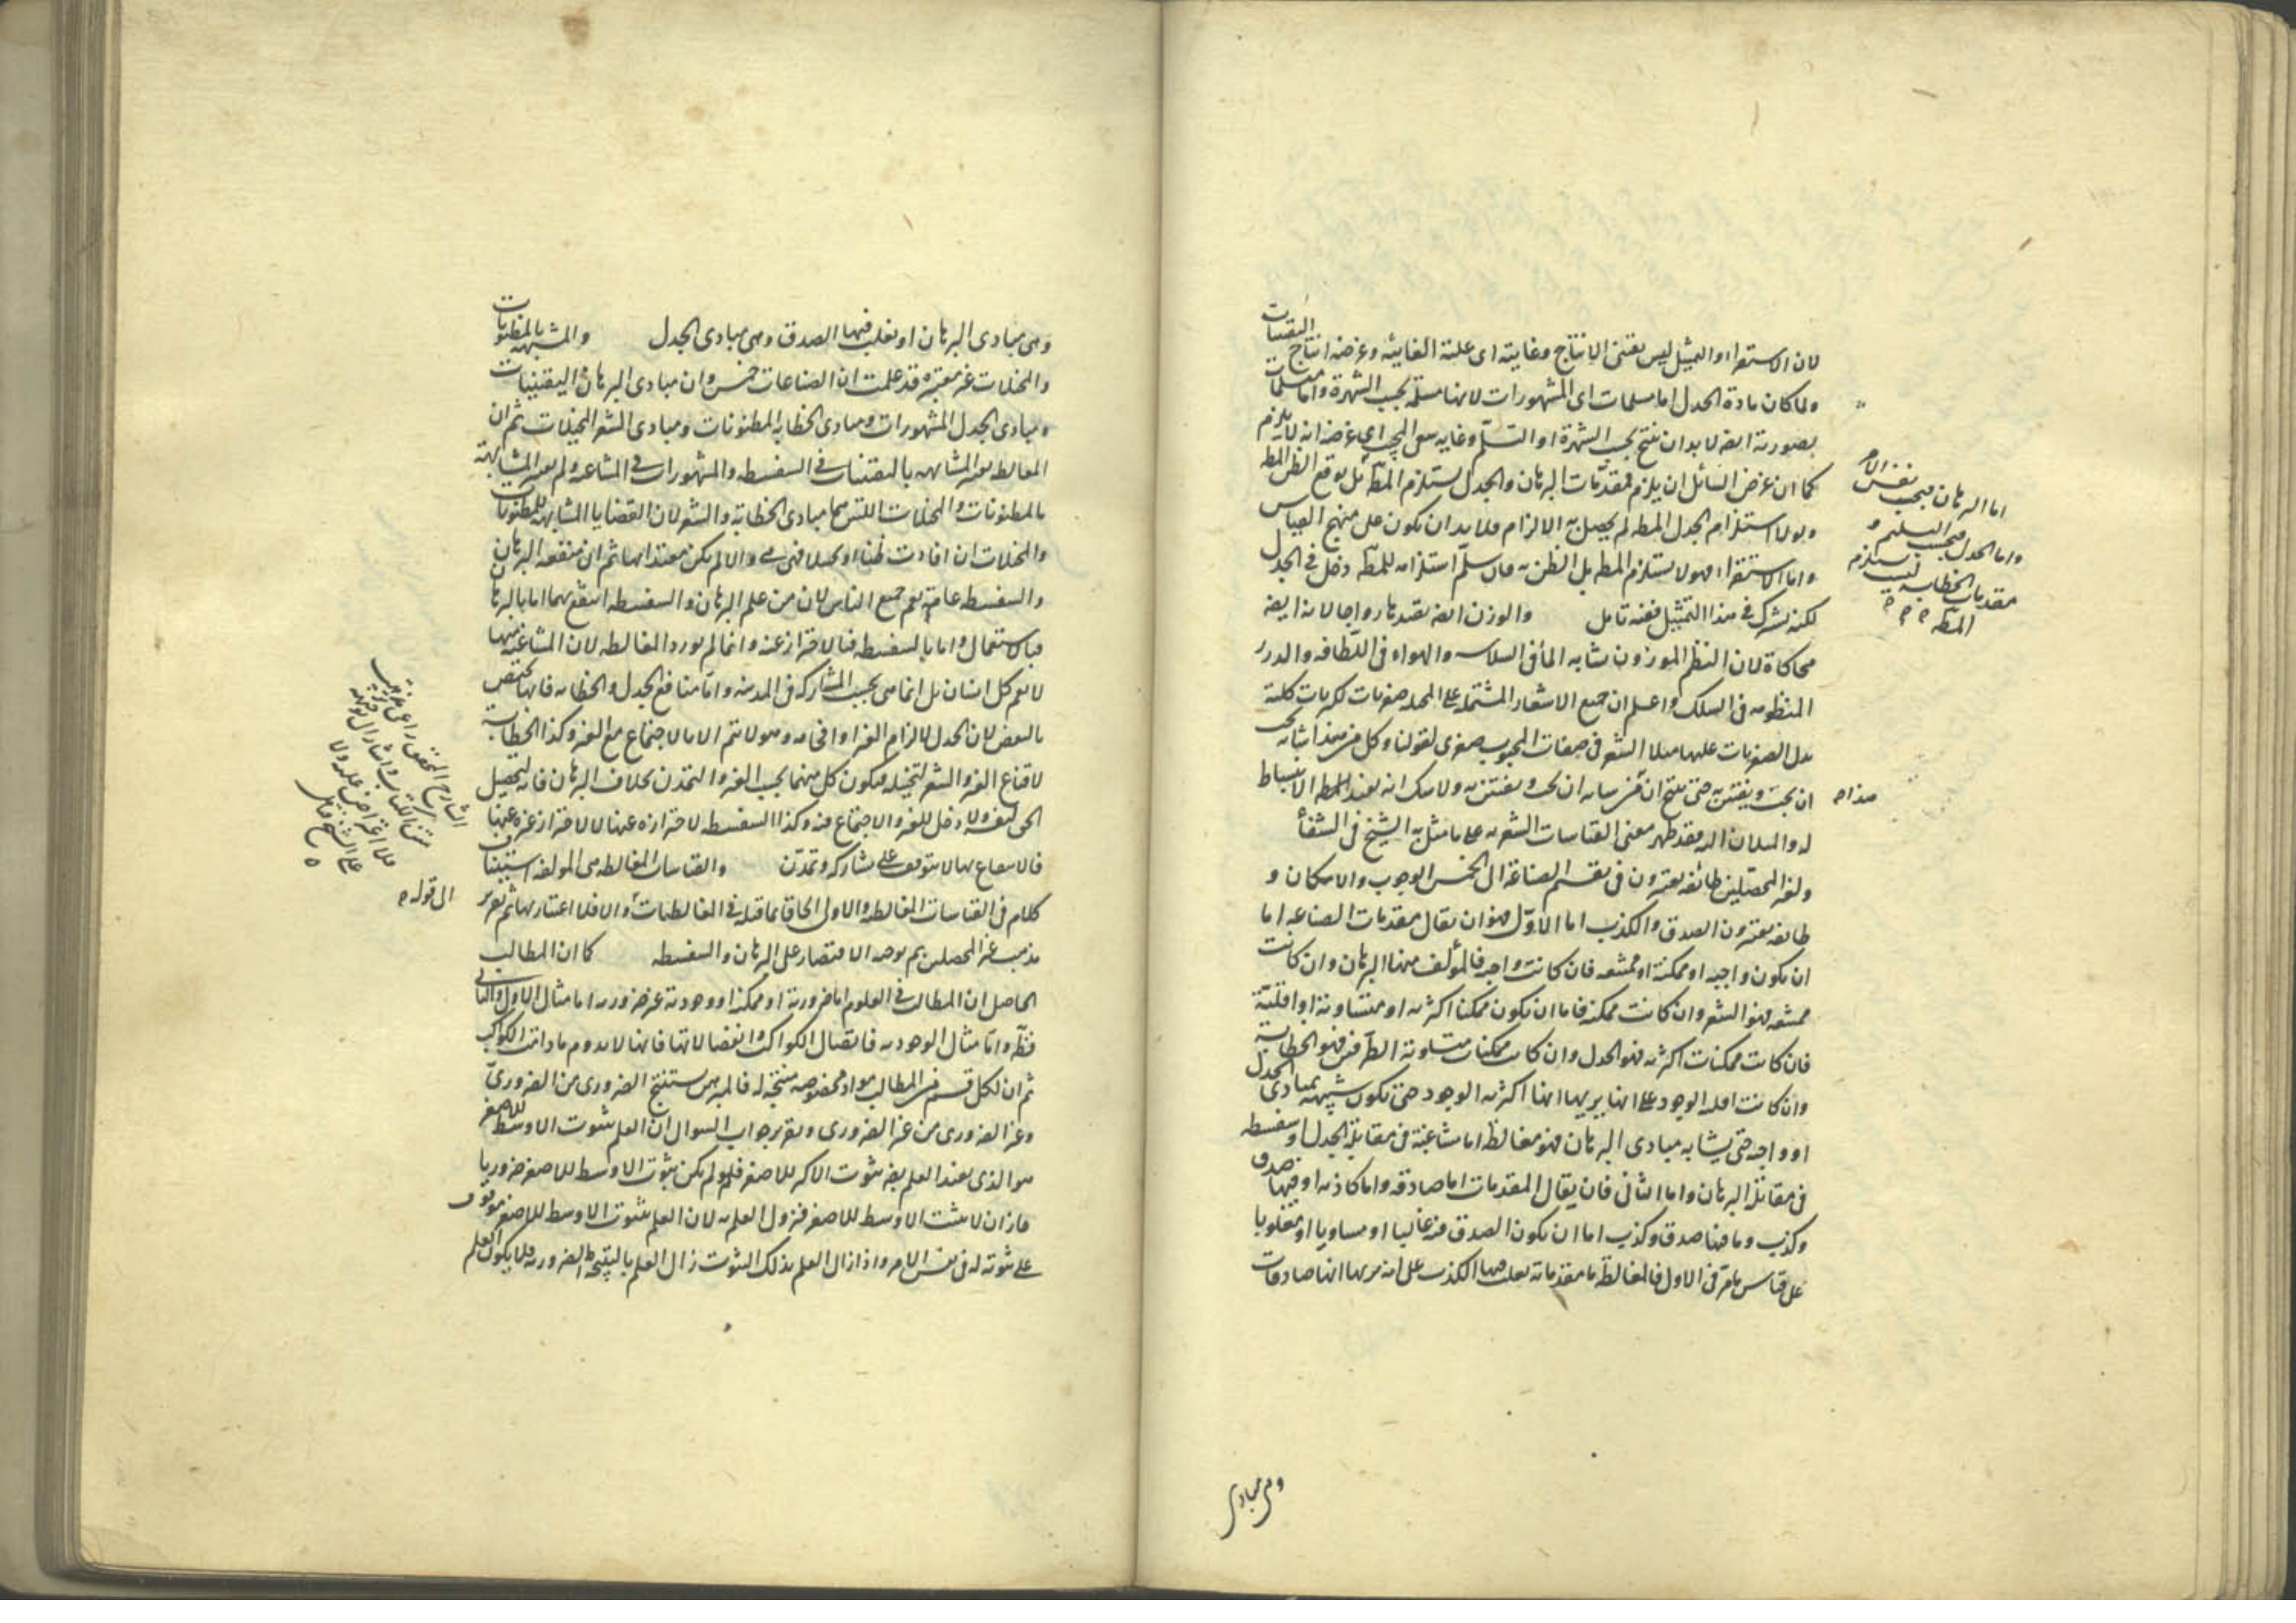 لان الاستقراء والتمثيل ليس يقتضى الانتاج وغايته اى علته الغائية وغرضه انتاج اليقينيات
ولما كان مادة الجدل اما مسلمات اى المشهورات لانها مسلمة بحسب الشهرة واما مسلمات
بصورته ايضا لابد ان ينتج بحسب الشهرة او التسلم وغايه سعى المجيب اى غرضه انه لا يلزم
كما ان غرض السائل ان يلزم فمقدمات البرهان والجدل يستلزم المط بل يوقع الظن بالمط
ولولا استلزام الجدل المط لم يحصل به الالزام فلا بد ان يكون على منهج القياس
واما الاستقراء فهو لا يستلزم المط بل الظن به فان سلم استلزامه للمط دخل فى الجدل
لكنه يشرك فى هذا التمثيل ففيه تامل والوزن ايضا يفيدها رواجا لانه ايضا
محاكاة لان النظم الموزون يشابه الماء فى السلاسه والهواء فى اللطافه والدرر
المنظومه فى السلك واعلم ان جميع الاشعار المشتملة على المخيله صغريات لكبريات كلية
يدل الصغريات عليها مثلا الشعر فى صفات المحبوب صغرى لقولنا وكل من هذا شانه
ان يحب ويفتتن به حتى ينتج ان من شانه ان يحب ويفتتن به ولا شك انه يفيد للمط الانبساط
له والميلان اليه فقد ظهر معنى القياسات الشعريه على ما مثل به الشيخ فى الشفاء
ولغير المحصلين طائفه يعتبرون فى تقسيم الصناعة الى الخمس الوجوب والامكان و
طائفه يعتبرون الصدق والكذب اما الاول فهو ان يقال مقدمات الصناعه اما
ان يكون واجبه او ممكنة او ممتنعه فان كانت واجبه فالمؤلف منها البرهان وان كانت
ممتنعه فهو الشعر وان كانت ممكنه فاما ان يكون ممكنا اكثريه او متساوية او اقلية
فان كانت ممكنات اكثريه فهو الجدل وان كانت ممكنات متساوية الطرفين فهو الخطابة
وان كانت اقليه الوجود على انها يريها انها اكثريه الوجود حتى تكون شبيهة بمبادى الجدل
او واجبه حتى يشابه مبادى البرهان فهو مغالطه اما مشاغبة فى مقابلة الجدل او سفسطه
فى مقابلة البرهان واما الثانى فان يقال المقدمات اما صادقه واما كاذبه او فيها صدق
وكذب وما فيها صدق وكذب اما ان يكون الصدق فيه غالبا او مساويا او مغلوبا
على قياس ما مر فى الاول فالمغالطه ما مقدماته يغلب فيها الكذب على انه يريها انها صادقات
اما البرهان فبحسب نفس الامر
واما الجدل فبحسب التسليم و
مقدمات الخطابه ليست يستلزم
المط
هذا
وهى مبادى
وهى مبادى البرهان او يغلب فيها الصدق وهى مبادى الجدل والمشبهة بالمظنونات
والمخيلات غير معتبره قد علمت ان الصناعات خمس وان مبادى البرهان اليقينيات
ومبادى الجدل المشهورات ومبادى الخطابه المظنونات ومبادى الشعر المخيلات ثم ان
المغالطه يعتبر المشابهه باليقينيات فى السفسطه والمشهورات فى المشاغبه ولم يعتبر المشابهة
بالمظنونات والمخيلات اللتين هما مبادى الخطابة والشعر لان القضايا المشابهه للمظنونات
والمخيلات ان افادت ظنا او تخيلا فهى هى والا لم يكن معتدا بها ثم ان منفعه البرهان
والسفسطه عامة يعم جميع الناس لان من علم البرهان والسفسطه انتفع بهما اما بالبرهان
فبالاستعمال واما بالسفسطه فبالاحتراز عنه وانما لم يورد المغالطه لان المشاغبه منها
لا يعم كل انسان بل انما هى بحسب المشاركه فى المدينه واما منافع الجدل والخطابه فانها يختص
بالبعض لان الجدل لالزام الغير او افحامه وهو لا يتم الا بالاجتماع مع الغير وكذا الخطابة
لاقناع الغير والشعر لتخييله فيكون كل منهما بحسب الغير والتمدن بخلاف البرهان فانه لتحصيل
الحق لنفسه ولا دخل للغير والاجتماع فيه وكذا السفسطه لاحترازه عنها لا لاحتراز غيره عنها
فالانتفاع بهما لا يتوقف على مشاركه وتمدن والقياسات المغالطه هى المؤلفه استيناف
كلام فى القياسات المغالطه والاول الحاقا بما قبله فى المغالطيات والا فلا اعتبار بها ثم تقرير
مذهب غير المحصلين ثم بوجه الاقتصار على البرهان والسفسطه كما ان المطالب
الحاصل ان المطالب فى العلوم اما ضرورية او ممكنة او وجودية غير ضروريه اما مثال الاول والثانى
فظاهر واما مثال الوجوديه فاتصال الكواكب وانفصالاتها فانها لا يدوم ما دامت الكواكب
ثم ان لكل قسم من المطالب مواد مخصوصه منتجة له فالمبرهن يستنتج الضرورى من الضرورى
وغير الضرورى من غير الضرورى وتقرير جواب السوال ان العلم بثبوت الاوسط للاصغر
هو الذى يفيد العلم بثبوت الاكبر للاصغر فلو لم يكن ثبوت الاوسط للاصغر ضروريا
جاز ان لا يثبت الاوسط للاصغر فيزول العلم به لان العلم بثبوت الاوسط للاصغر موقوف
على ثبوته له فى نفس الامر واذا زال العلم بذلك الثبوت زال العلم بالنتيجة الضروريه فلا يكون العلم
الشارح المحقق راعى
متن الكتاب واشار الى
فلا اعتراض عليه ولا
على الشيخ
الى قوله